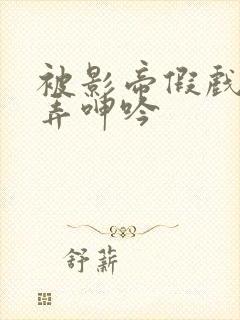 被影帝假戏
弄呻吟
舒薪